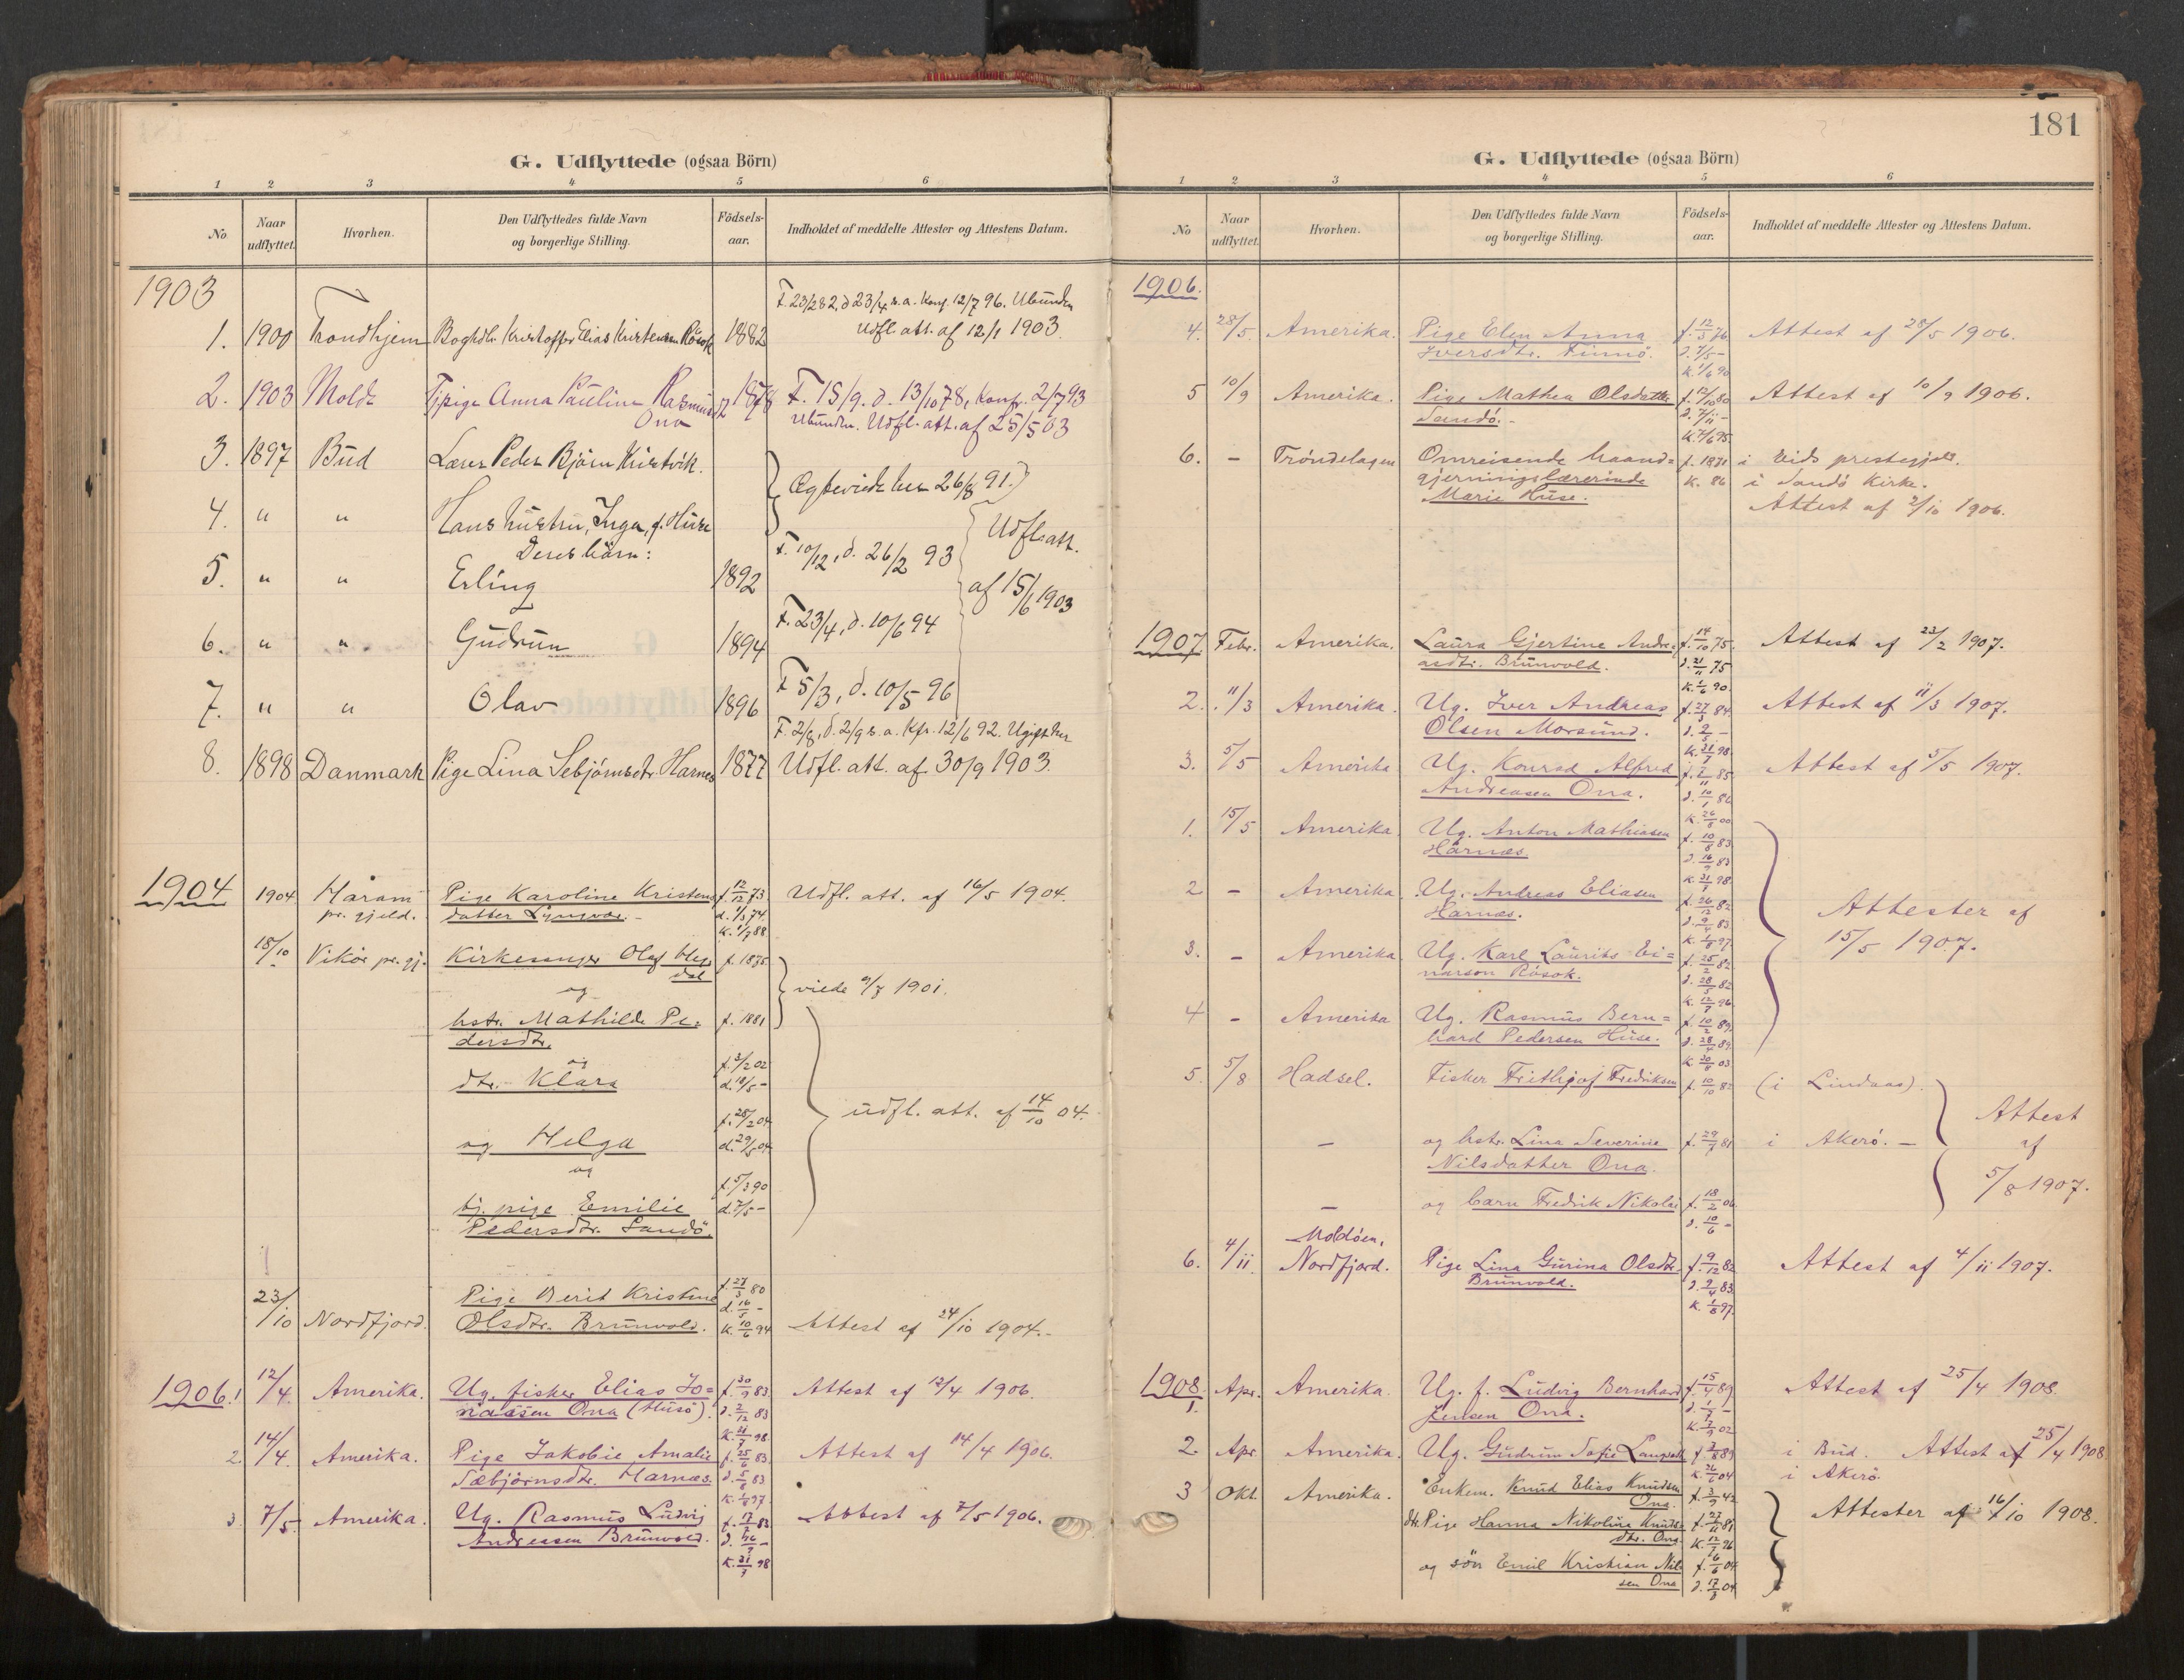 G. Udflyttede (ogsaa Börn)
1 2 3 4 5 6
No
Naar udflyttet.
Hvorhen.
Den Udflyttedes fulde Navn og borgerlige Stilling.
Födsels-aar.
Indholdet af meddelte Attester og Attestens Datum.
1903
F. 23/2 82, d 23/4 s.a. Konf. 12/7 96. Ubunden
1. 1900 Trondhjem Boghdlr. Kristoffer Elias Kristensen Rösok 1882 Udfl. att. af 12/1 1903.
2. 1903 Molde Tjpige Anna Pauline Rasmusd 1878 F. 15/9. d. 13/10 78, Konf. 2/7 93
Ona Ubunden. Udfl. att. af 25/5 03
3. 1897 Bud Lærer Peder Björn Kristvik.
Ægteviede her 26/8 91.
4. " " Hans hustru, Inga, f. Huse
Deres börn: Udfl. att.
5. " " Erling 1892 F. 10/12, d. 26/2 93
af 15/6 1903
6. " " Gudrun 1894 F. 23/4, d. 10/6 94
7. " " Olav 1896 F 5/3, d. 10/5 96
F. 2/8, d. 2/9 s.a. Kfr. 12/6 92. Ugift her
8. 1898 Danmark Pige Lina Sebjörnsdtr. Harnes 1877 Udfl. att. af 30/9 1903.
1904 1904 Haram Pige Karoline Kristens f. 12/12 73 Udfl. att. af 16/5 1904.
pr. gjeld. datter Lyngvær. - d. 1/3 74
k. 1/7 88
18/10 Vikör pr. gj. Kirkesanger Olaf
dal f. 1875
og viede 9/7 1901.
hstr. Mathilde Pe= f. 1881
dersdtr.
og f. 3/2 02
dtr. Klara d. 18/5 -
f. 28/2 04 udfl. att. af 14/10 04.
og Helga d. 29/5 04
og
f. 5/3 90
tj. pige Emilie d. 7/5 -
Pedersdtr. Sandö.
23/10 Nordfjord. Pige Berit Kristine f. 27/3 80
Olsdtr. Brunvold. d. 16/5 - k. 10/6 94 Attest af 24/10 1904.-
1906. 1 12/4 Amerika. Ug. fisker Elias Jo= f. 30/9 83 Attest af 12/4 1906.
nassen Ona (Husö). d. 2/12 83
k. 31/7 98
2. 14/4 Amerika. Pige Jakobie Amalie f. 25/6 83 Attest af 14/4 1906.
Sæbjörnsdtr. Harnæs. d. 5/8 83
k. 1/8 97
3. 7/5 Amerika. Ug. Rasmus Ludvig f. 17/7 83 Attest af 7/5 1906.
Andreassen Brunvold.
k. 31/7 98
181
G. Udflyttede (ogsaa Börn)
1 2 3 4 5 6
No
Naar udflyttet.
Hvorhen.
Den Udflyttedes fulde Navn og borgerlige Stilling.
Födsels-aar.
Indholdet af meddelte Attester og Attestens Datum.
1906.
4. 28/5 Amerika. Pige Elen Anna f. 12/3 76 Attest af 28/5 1906.
Iversdtr. Finnö. d. 7/5 -
k. 1/6 90
5 10/9 Amerika. Pige Mathea Olsdatter f. 12/10 80 Attest af 10/9 1906.
Sandö. - d. 7/11 -
k. 7/6 95
6. - Tröndelagen Omreisende haand= f. 1871 i Eids prestegjeld.
gjerningslærerinde k. 86 i Sandö kirke.
Marie Huse. Attest af 2/10 1906.
1907 Febr. Amerika. Laura Gjertine Andre= f. 14/10 75. Attest af 23/2 1907.
asdtr. Brunvold. d. 21/11 75
k. 1/6 90.
2. 11/3 Amerika. Ug. Iver Andreas f. 27/3 84. Attest af 11/3 1907.
Olsen Morsund. d. 2/5 -
k. 31/7 98
3. 5/5 Amerika Ug. Konrad Alfred f. 2/11 85. Attest af 5/5 1907.
Andreasen Ona. d. 10/1 86
k. 26/8 00
1. 15/5 Amerika. Ug. Anton Mathiasen f. 10/8 83
Harnæs. d. 16/9 83
k. 31/7 98.
2 - Amerika Ug. Andreas Eliasen f. 26/12 82 Attester af
Harnæs. d. 9/4 83
k. 1/8 97 15/5 1907.
3. - Amerika. Ug. Karl Laurits Ei= f. 25/2 82
narson Rösok. d. 28/5 82
k. 12/7 96
4 - Amerika Ug. Rasmus Bern= f. 10/2 89.
hard Pedersen Huse. d. 28/4 89.
k. 30/8 03
5. 5/8 Hadsel. Fisker Frithjof Fredriksen f. 10/10 82 (i Lindaas).
Attest
- og hstr. Lina Severine f. 29/7 81 i Akerö. - af
Nilsdatter Ona.
5/8 1907.
- og barn Fredrik Nikolai f. 18/2 06.
d. 10/6 -
Moldöen,
6. 4/11 Nordfjord. Pige Lina Gurina Olsdtr. f. 9/12 82 Attest af 4/11 1907.
Brunvold. d. 9/4 83
k. 1/8 97.
1908. 1 Apr. Amerika. Ug. f. Ludvig Bernhard f. 15/4 89 Attest af 25/4 1908.
Jensen Ona. d. 1/7 -
02
2. Apr. Amerika. Ug. Gudrun Sofie f. 2/8 89 i Bud. Attest af 25/4 1908
k. 26/6 04 i Akerö.
3 Okt. Amerika. Enkem. Knud Elias Knudsen f. 3/9 42
Ona.
dtr. Pige Hanna Nikoline Knuds= f. 27/11 81 Attester af 16/10 1908.
dtr. Ona. k. 12/7 96
og sön Emil Kristian Nil= f. 6/6 04
sen Ona d. 17/7 04